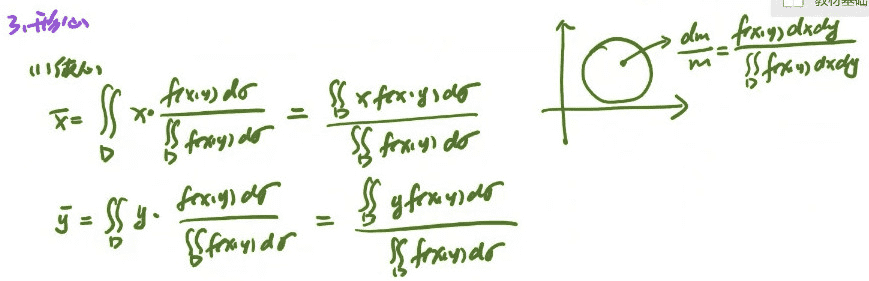 3.形心
(1)质心
x̄ = ∬_D x · f(x,y)dσ / ∬_D f(x,y)dσ = ∬_D x f(x,y)dσ / ∬_D f(x,y)dσ
ȳ = ∬_D y · f(x,y)dσ / ∬_D f(x,y)dσ = ∬_D y f(x,y)dσ / ∬_D f(x,y)dσ
dm/m = f(x,y)dxdy / ∬_D f(x,y)dxdy
教材基础